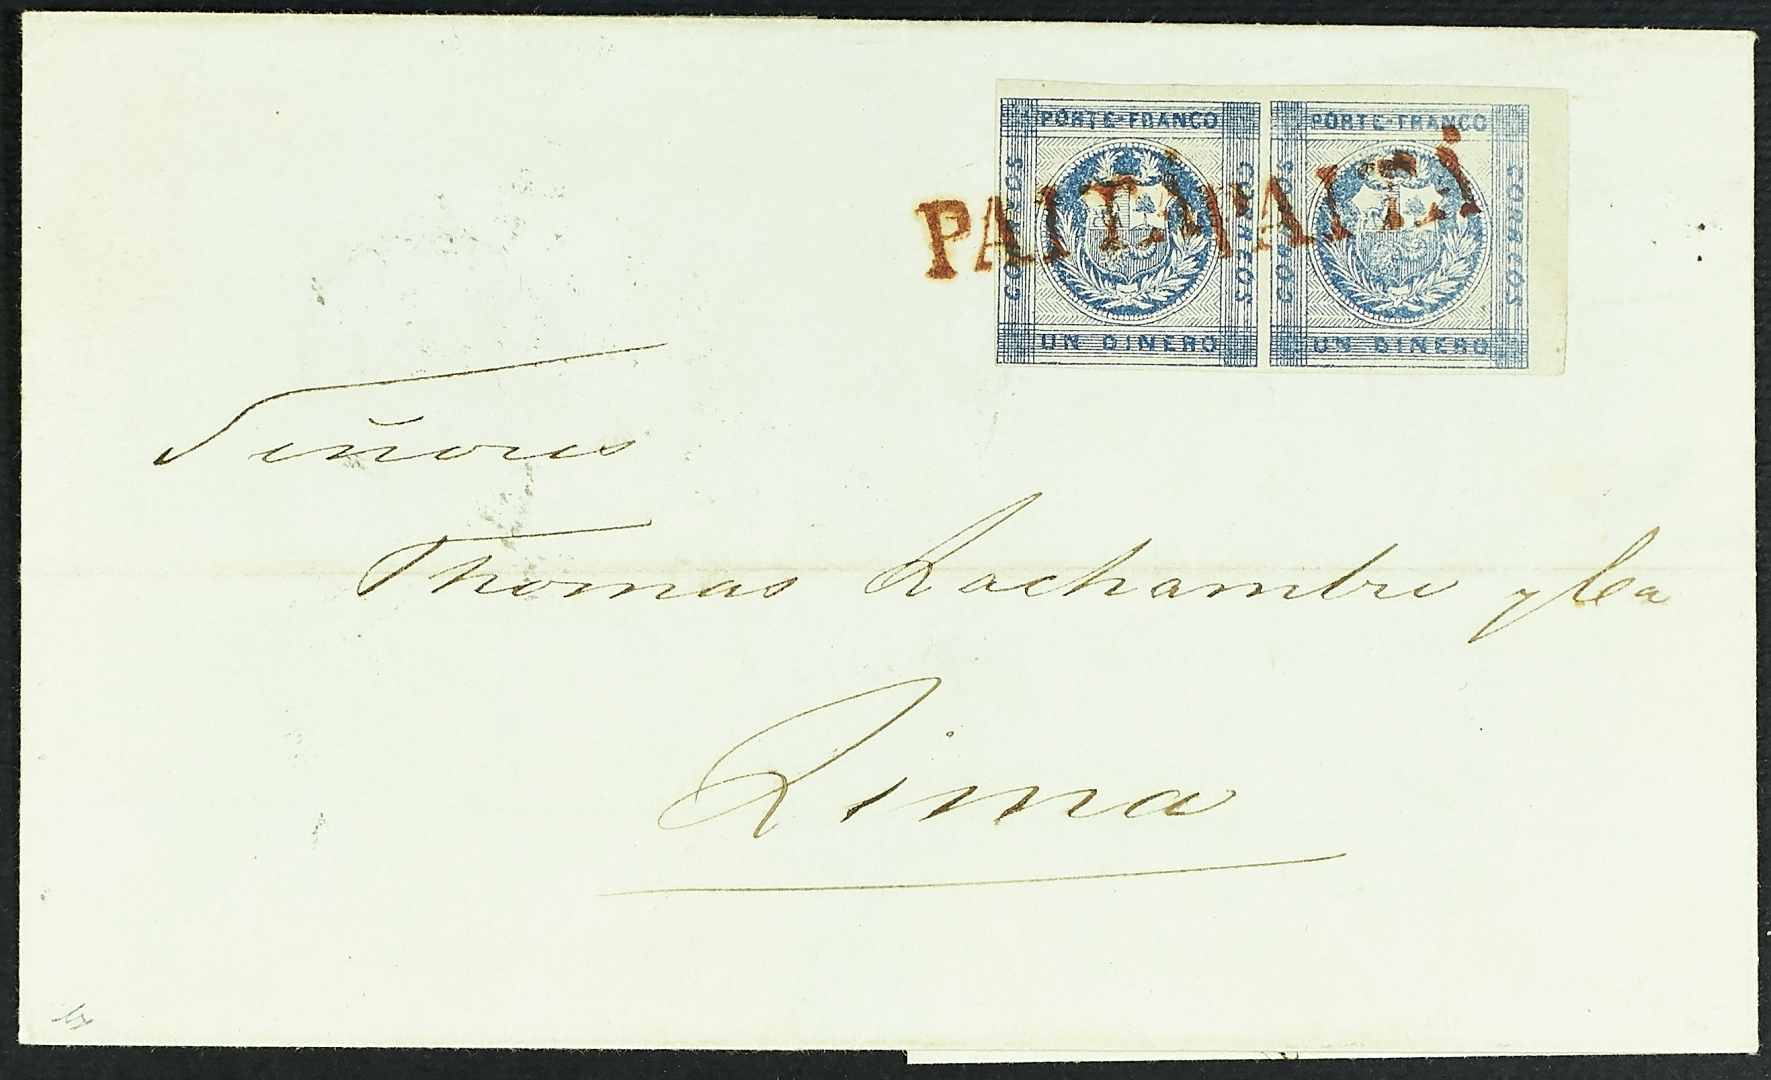 PORTE-FRANCO PORTE-FRANCO
CORREOS CORREOS CORREOS CORREOS
PAITA PAITA
UN DINERO UN DINERO
Señores
Thomas Lachambre y Ca
Lima